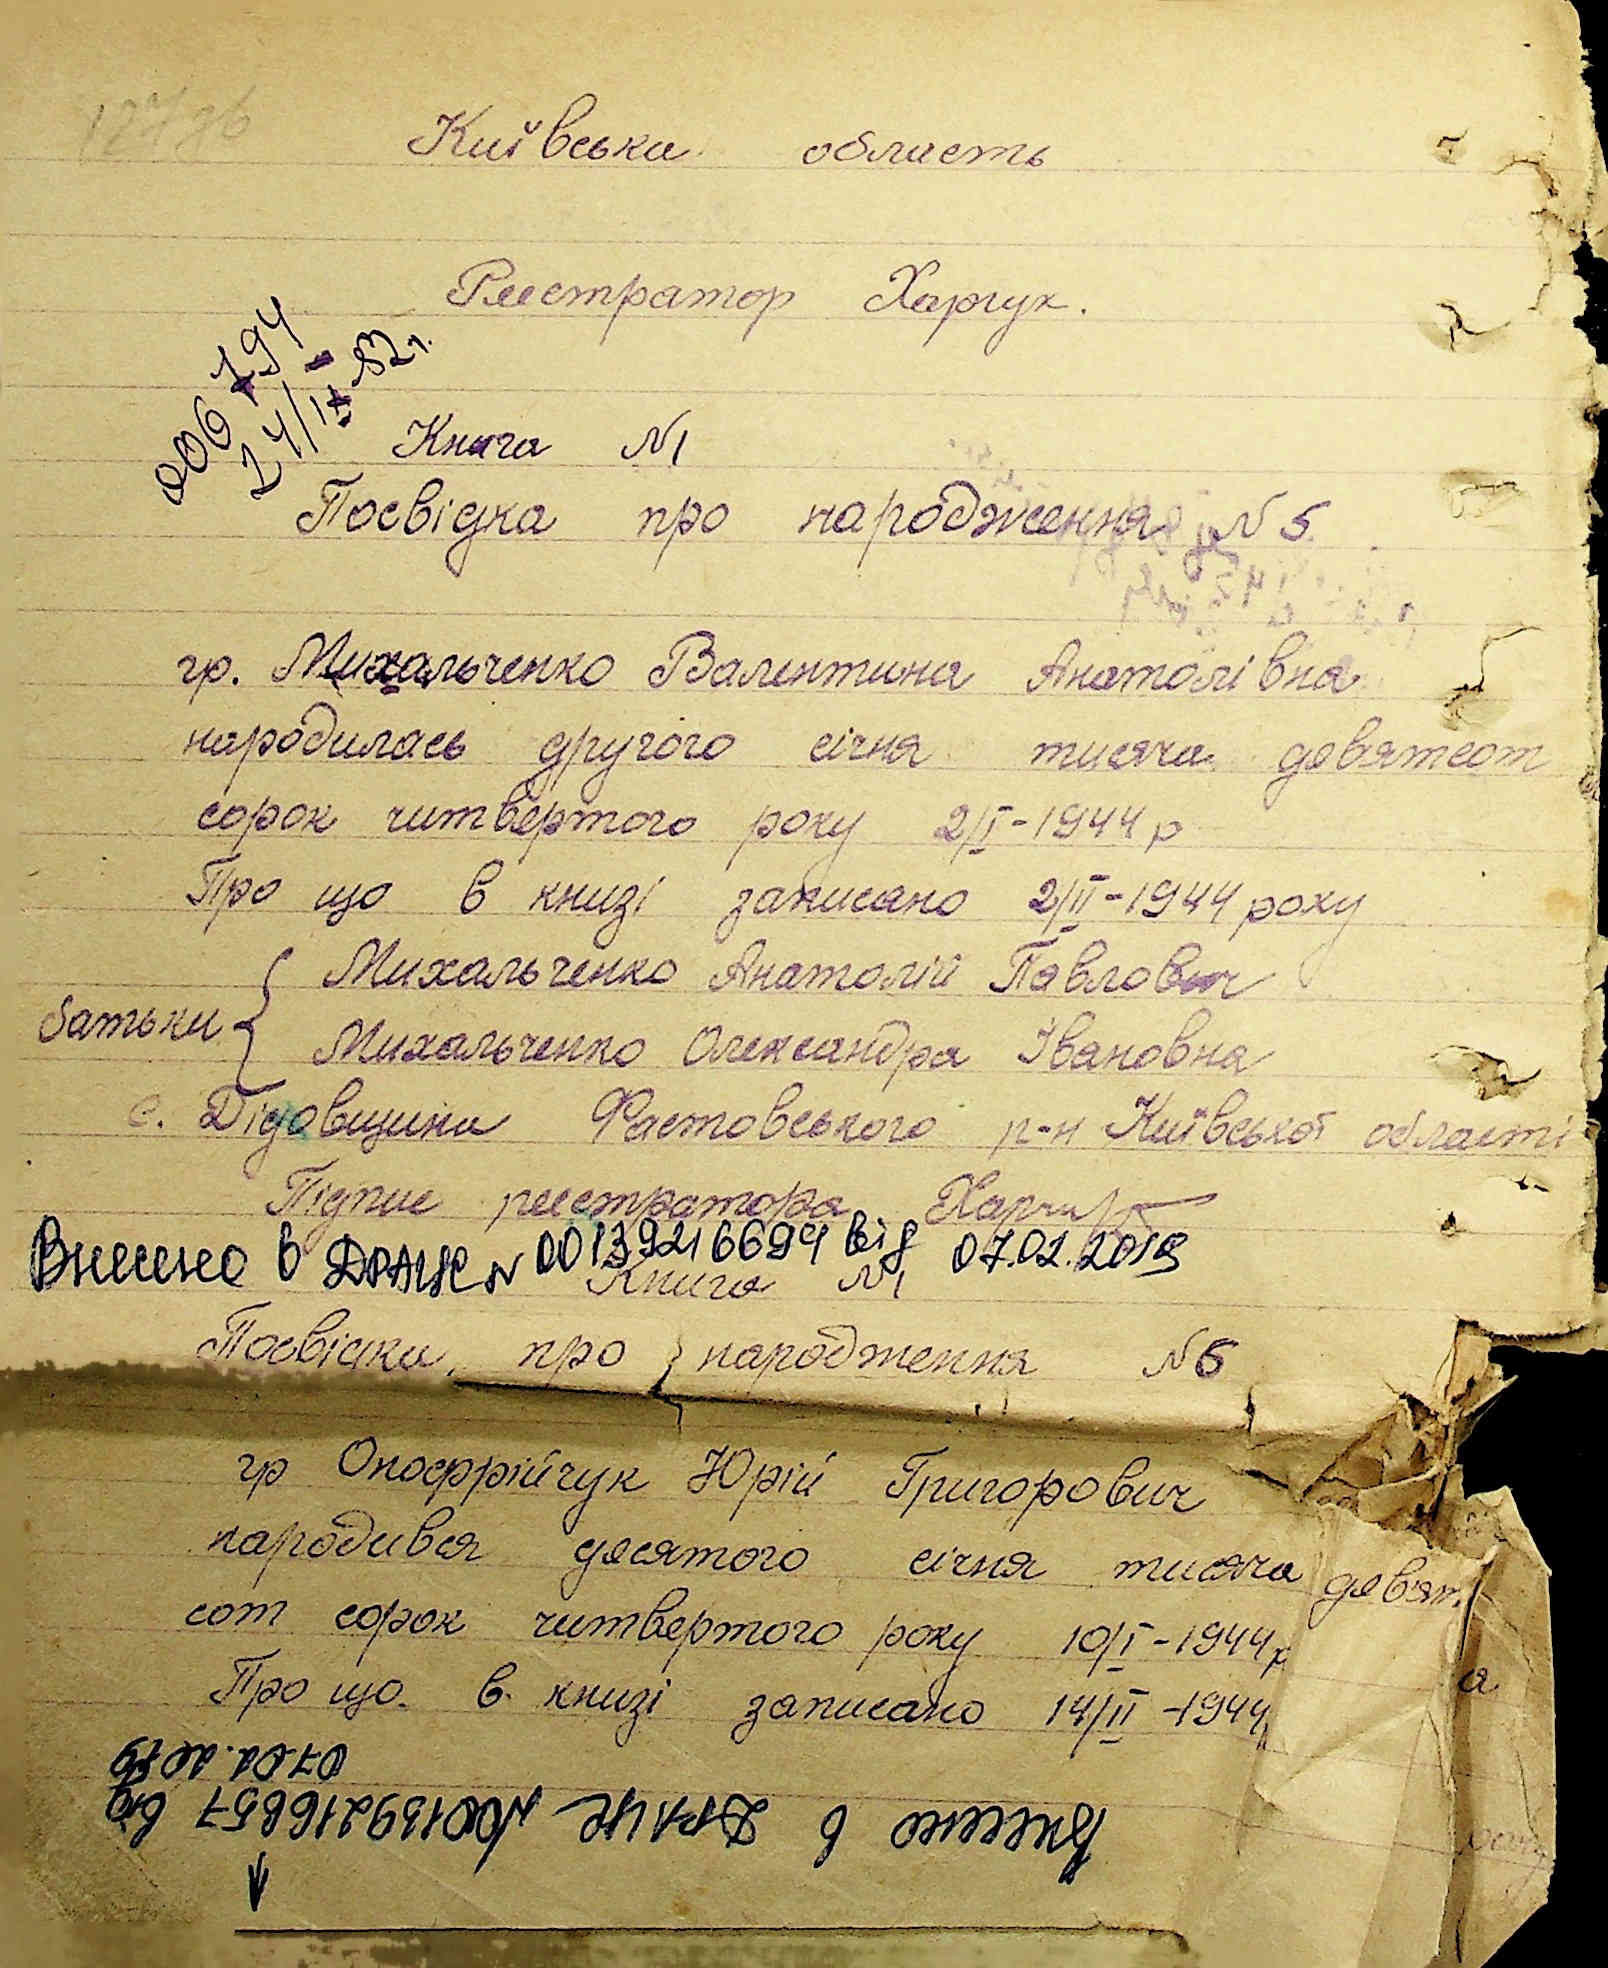 Київська область
Реестратор Харчук.
006794
24/IX-82 г.
Книга №1
Посвідка про народження №5
гр. Михальченко Валентина Анатолівна
народилась другого січня тисяча девятсот
сорок читвертого року 2/I-1944 р
Про що в книзі записано 2/II-1944 року
батьки { Михальченко Анатолій Павлович
Михальченко Олександра Івановна
с. Дідовщина Фастовського р-н Київської області
Підпис реестратора
Внесено в ДРАЦС № 00139216694 від 07.02.2018
Книга №1
Посвідка про народження №6
гр Оноєррійчук Юрій Григорович
народився десятого січня тисяча девят.
сот сорок читвертого року 10/I-1944 р
Про що в книзі записано 14/II-1944
Внесено в ДРАЦС №00139216857 від